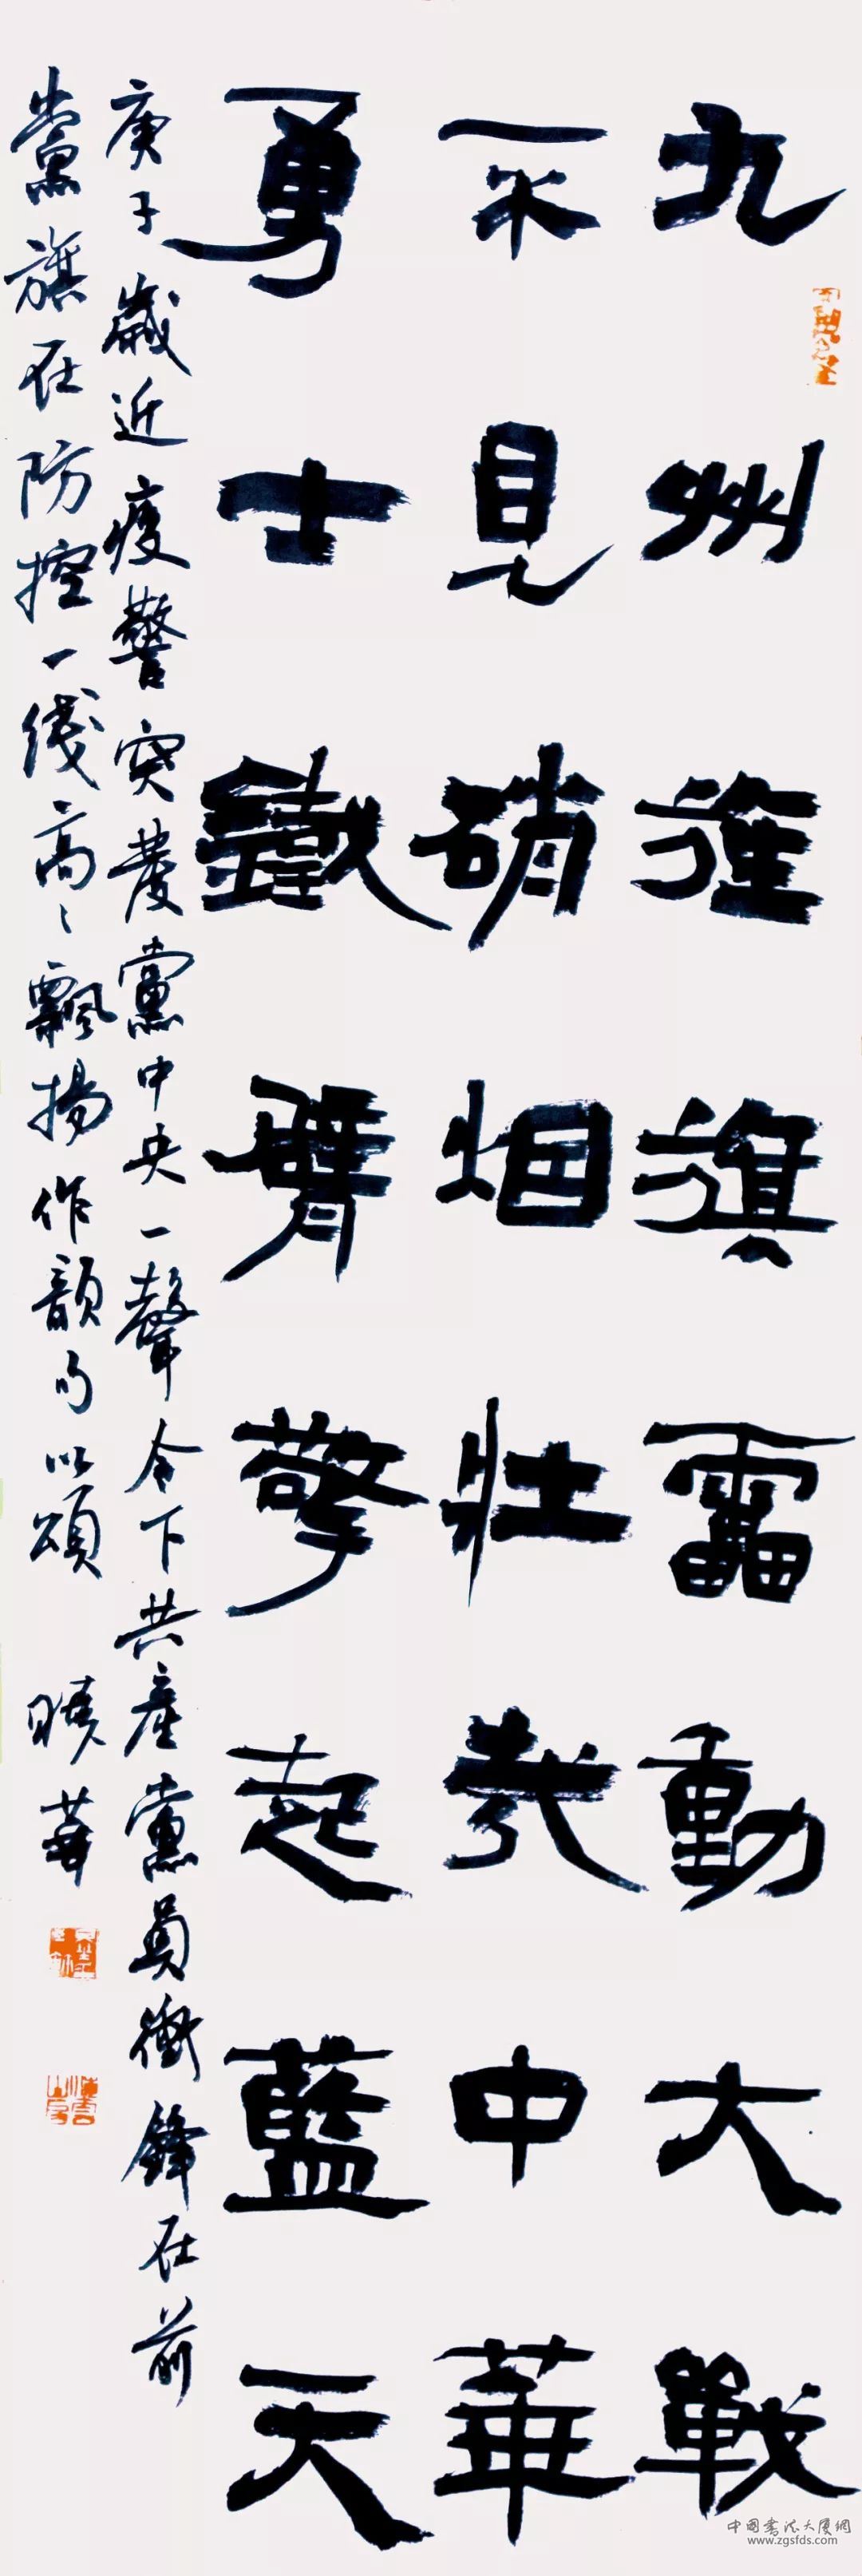 九州旌旗雷動大戰
不見硝烟壯哉中華
勇士鐵臂擎起藍天
庚子歲近疫警突發黨中央一聲令下共產黨員衝鋒在前
黨旗在防控一线高々飄揚作韻句以頌 曉華
中國書法大厦網
www.zgsfds.com